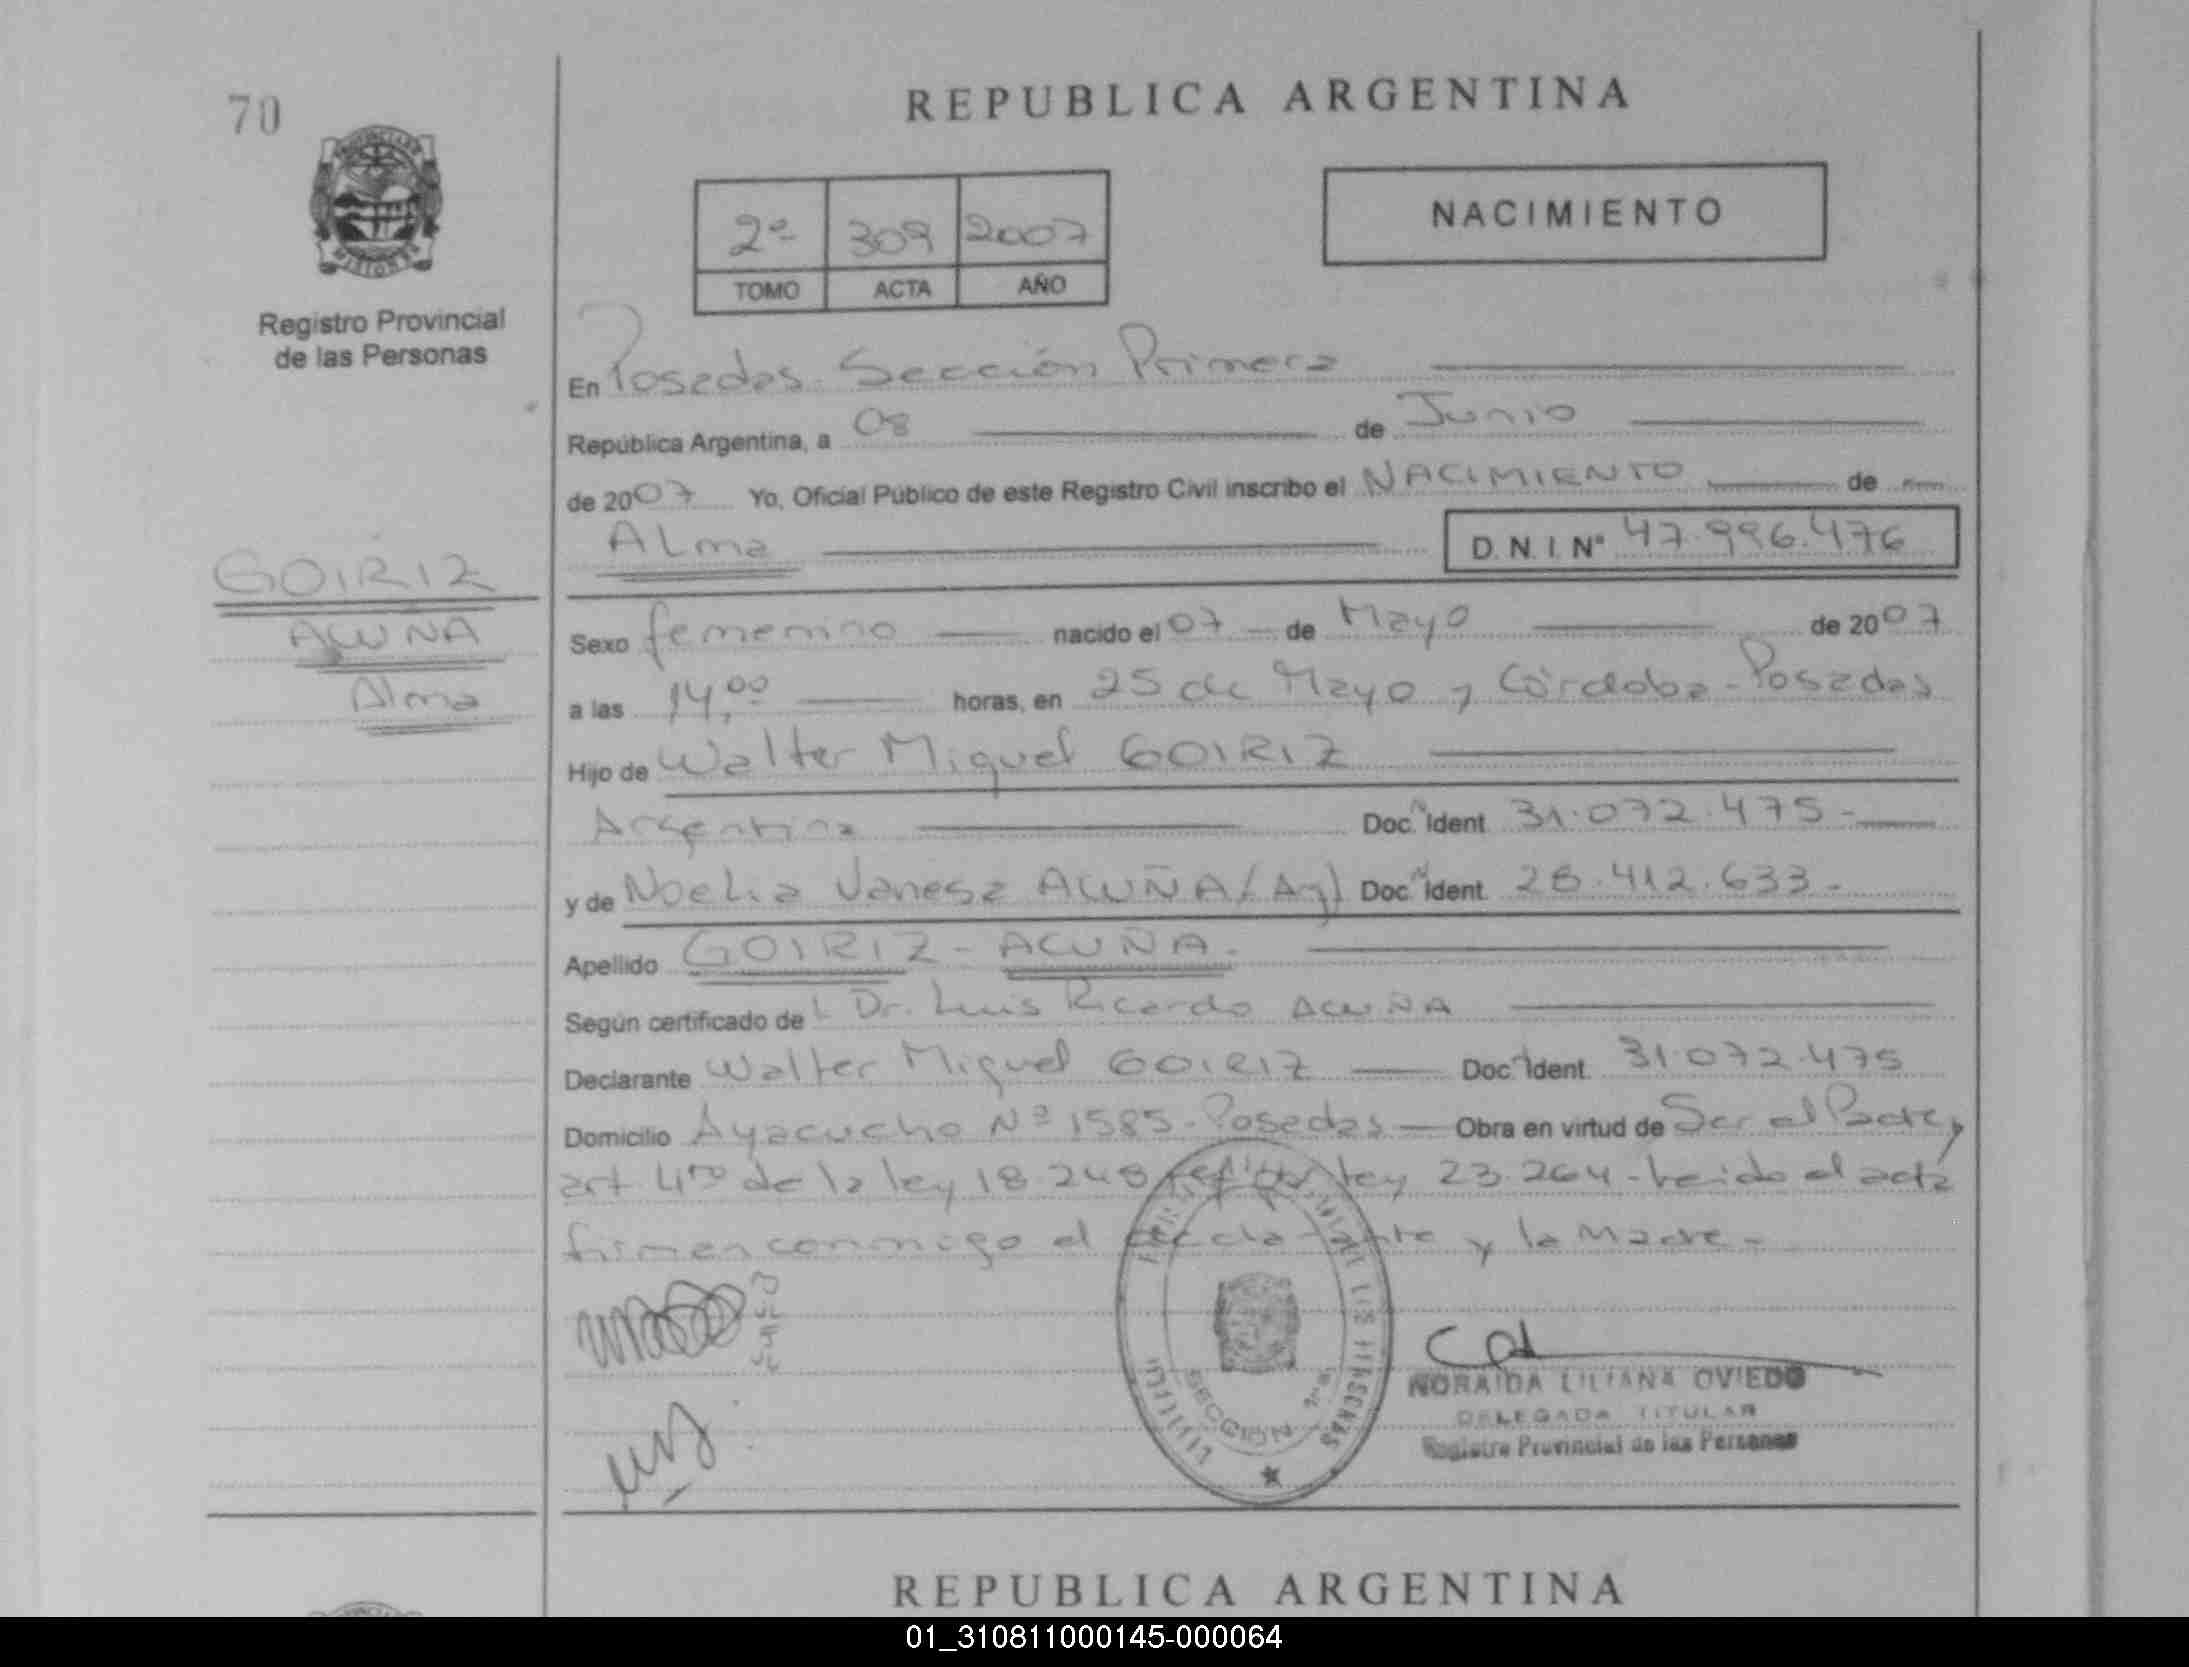 70
REPUBLICA ARGENTINA
PROVINCIA DE
MISIONES
Registro Provincial
de las Personas
2º 309 2007
TOMO ACTA AÑO
NACIMIENTO
En Posadas - Sección Primera
República Argentina, a 08 de Junio
de 2007 Yo, Oficial Público de este Registro Civil inscribo el NACIMIENTO de
Alma D. N. I. Nº 47.996.476
GOIRIZ
ACUÑA
Alma
Sexo femenino nacido el 07 de Mayo de 2007
a las 14,00 horas, en 25 de Mayo y Córdoba - Posadas
Hijo de Walter Miguel GOIRIZ
Argentina Doc. Ident. 31.072.475 -
y de Noelia Vanesa ACUÑA (Arg) Doc. Ident. 28.412.633 -
Apellido GOIRIZ - ACUÑA.
Según certificado del Dr. Luis Ricardo ACUÑA
Declarante Walter Miguel GOIRIZ Doc. Ident. 31.072.475
Domicilio Ayacucho Nº 1585 - Posadas - Obra en virtud de Ser el Padre y
art 4to de la ley 18.248 ley 23.264 - Leido el acta
firman conmigo el declarante y la Madre -
SECCION 1ra
NORAIDA LILIANA OVIEDO
DELEGADA TITULAR
Registro Provincial de las Personas
REPUBLICA ARGENTINA
01_310811000145-000064